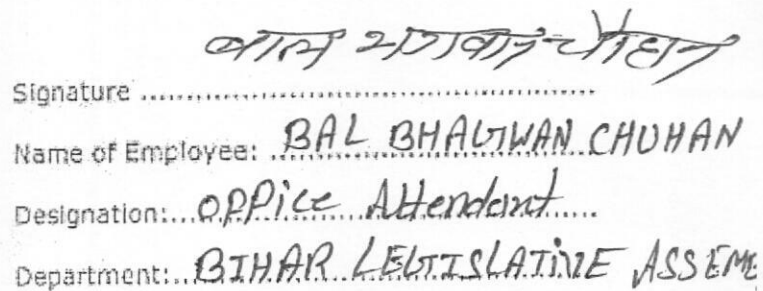 बाल भगवान चौहान
Signature ..........................................
Name of Employee: BAL BHAGWAN CHUHAN
Designation:...OFFice Attendant.....
Department:..BIHAR LEGISLATIVE ASSEM